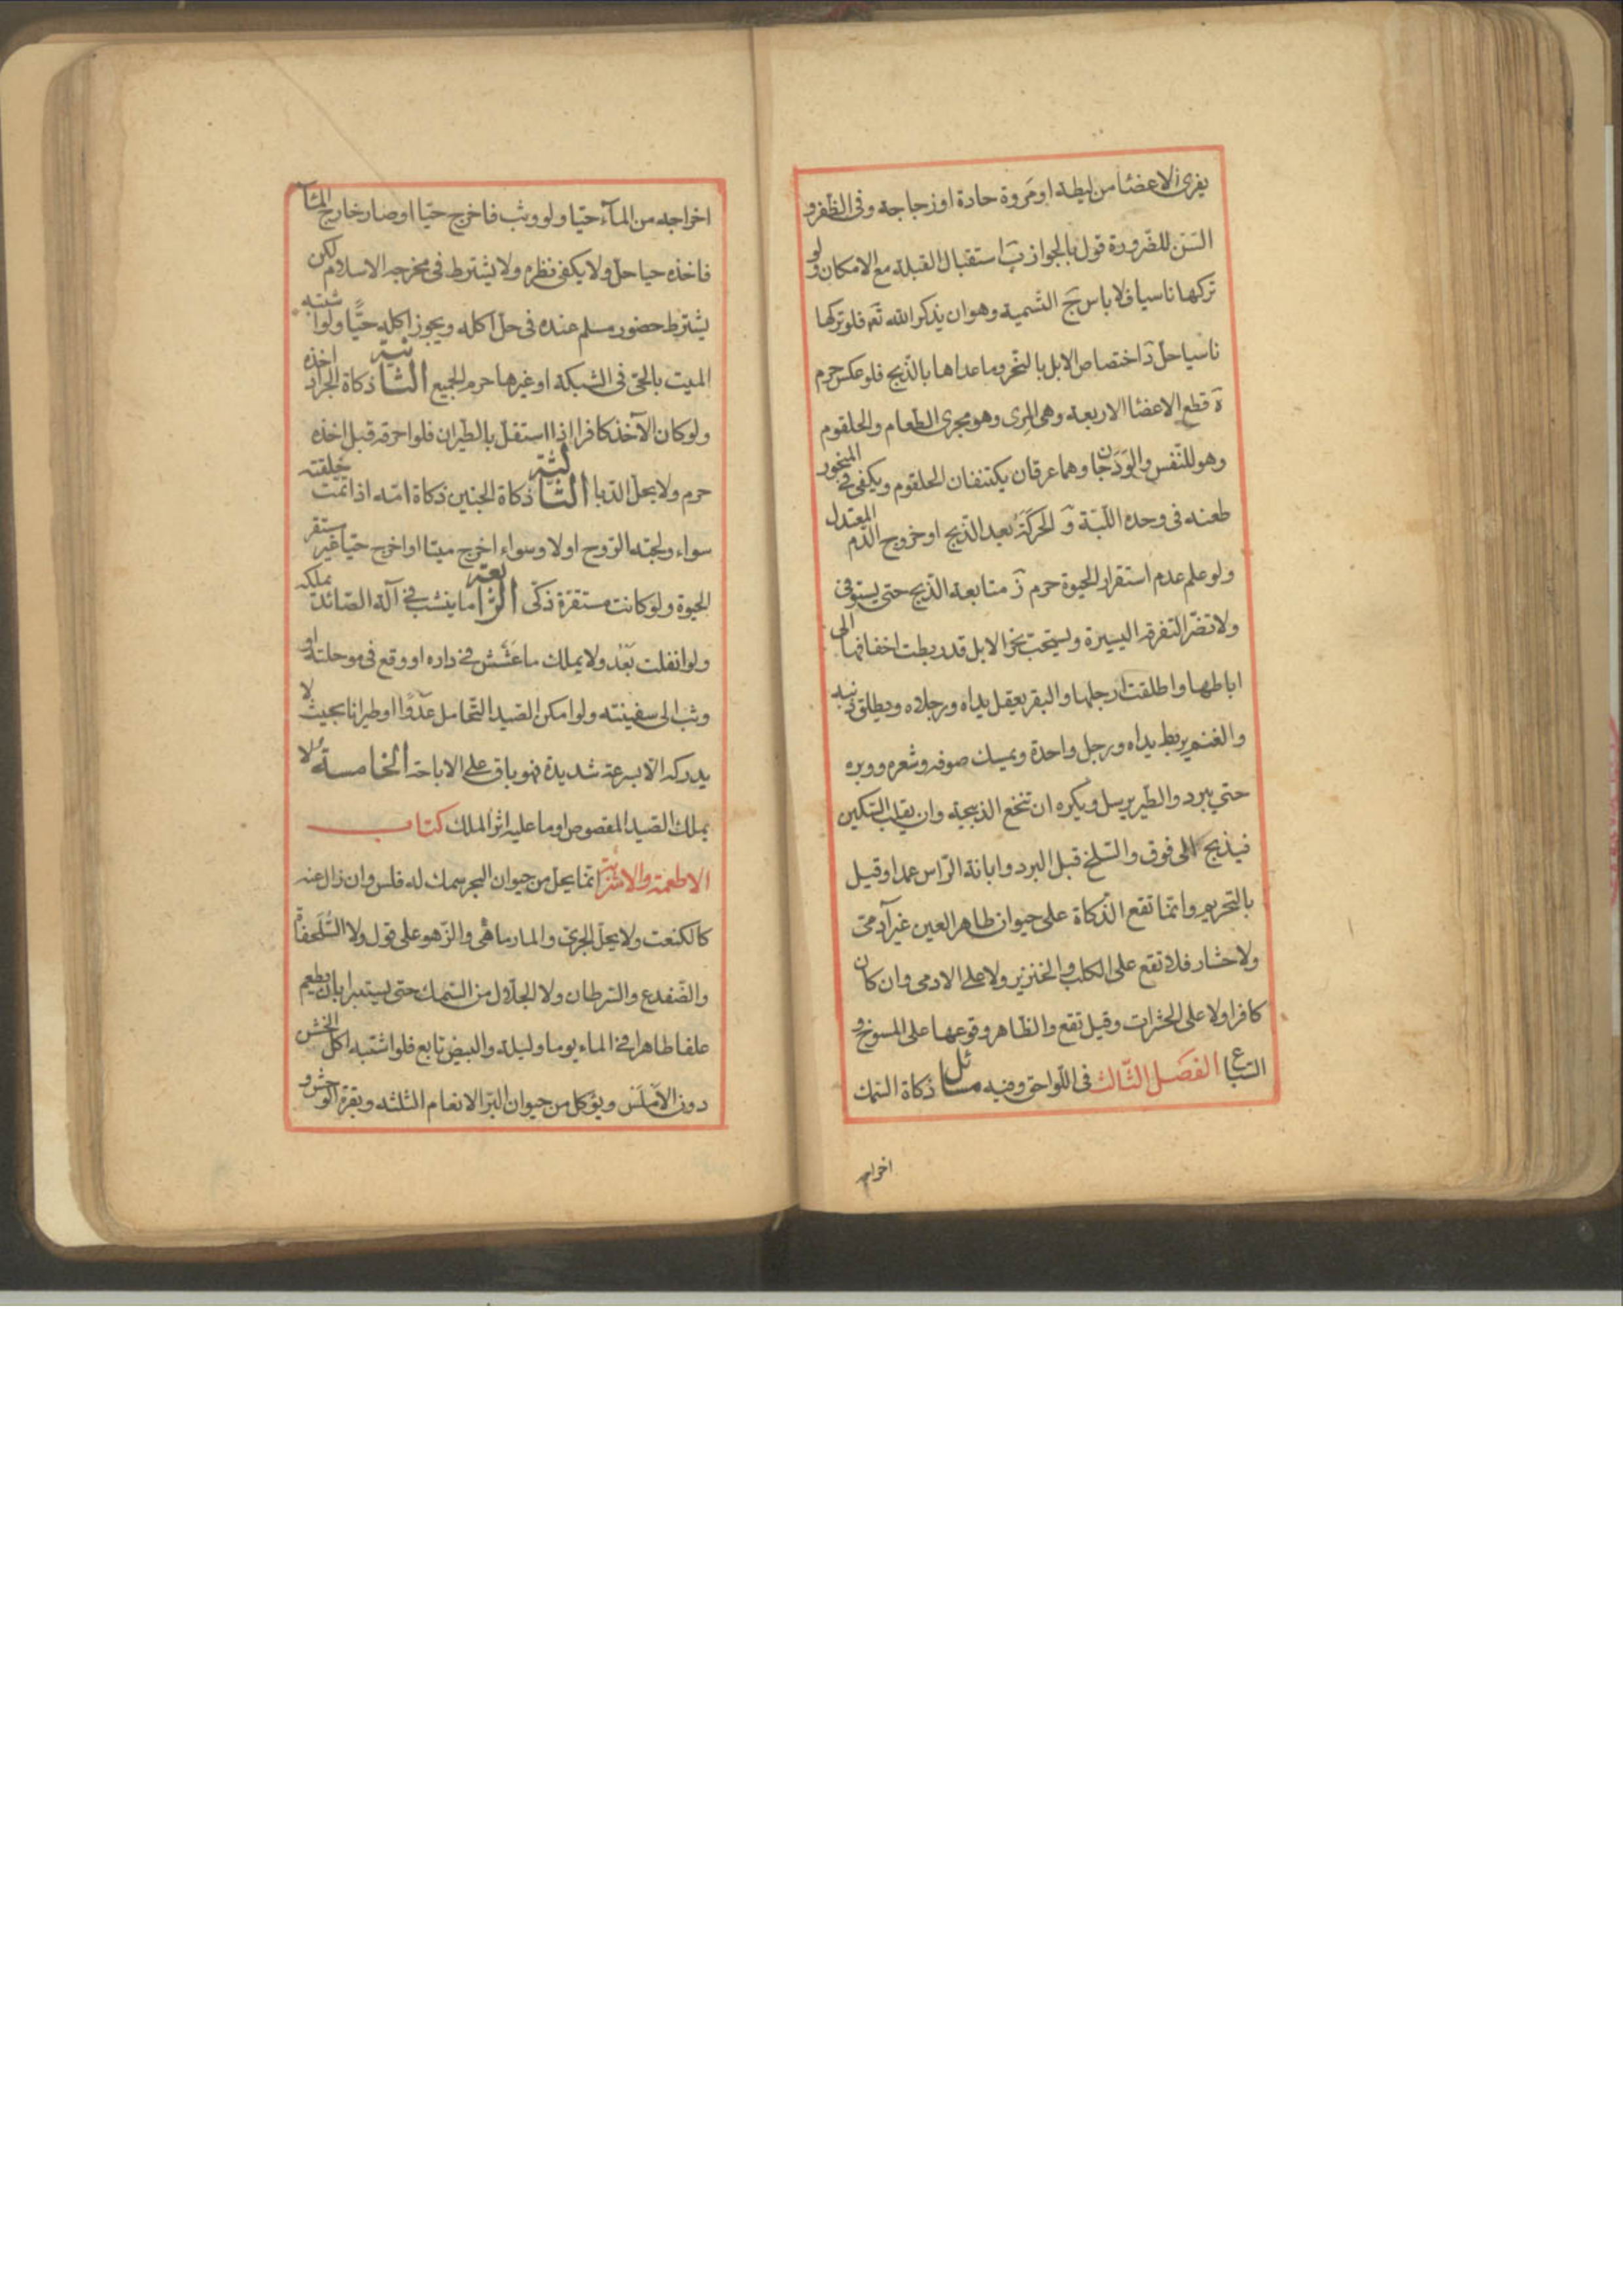 يفرى الاعضا من ليطة او مَروة حادة او زجاجة وفى الظفر و
السّن للضّرورة قول بالجواز بَ استقبال القبلة مع الامكان ولو
تركها ناسيا فلا باس جَ التّسمية وهو ان يذكر الله تعَ فلو تركها
ناسيا حل دَ اختصاص الابل بالنّحر وما عداها بالذّبح فلو عكس حرم
هَ قطع الاعضا الاربعة وهى المرى وهو مجرى الطعام والحلقوم
وهو للنّفس والوَدَجان وهما عرقان يكتنفان الحلقوم ويكفى فى المنحور
طعنه فى وحده اللّبّة وَ الحَركَةُ بعد الذّبح او خروج الدّم المعتدل
ولو علم عدم استقرار الحيوة حرم زَ متابعة الذّبح حتى يستوفى
ولا تضرّ التفرقة اليسيرة ويستحب نحر الابل قد ربطت اخفافها الى
اباطها واطلقت ارجلها والبقر يعقل يداه ورجلاه ويطلق ذنبه
والغنم يربط يداه ورجل واحدة ويمسك صوفه وشعره ووبره
حتى يبرد والطير يرسل ويكره ان تنخع الذبيحة وان يقلب السّكين
فيذبح الى فوق والسّلخ قبل البرد وابانة الرّاس عمدا وقيل
بالتحريم وانّما تقع الذّكاة على حيوان طاهر العين غير آدمىّ
ولا حشار فلا تقع على الكلب والخنزير ولا على الادمى وان كان
كافرا ولا على الحشرات وقيل تقع والظاهر وقوعها على المسوخ و
السّباع الفَصَل الثّالث فى اللّواحق وفيه مسائل ذكاة السّمك
اخراجه
اخراجه من المآء حيّا ولو وثب فاخرج حيّا او صار خارج المآء
فاخذه حيا حلّ ولا يكفى نظره ولا يشترط فى مخرجه الاسلام لكن
يشترط حضور مسلم عنده فى حلّ اكله ويجوز اكله حيًّا ولو اشتبه
الميت بالحىّ فى الشبكة او غيرها حرم الجميع الثّانية ذكاة الجراد اخذه
ولو كان الآخذ كافرا اذا استقلّ بالطيران فلو احرقه قبل اخذه
حرم ولا يحلّ الدّبا الثّالثة ذكاة الجنين ذكاة امّه اذا تمّت خلقته
سواء ولجته الرّوح اولا وسواء اخرج ميتا او اخرج حيّا غير مستقر
الحيوة ولو كانت مستقرّة ذكّى الرّابعة ما ينشب فى آلة الصّائد يملكه
ولو انفلت بَعْد ولا يملك ما عَشّش فى داره او وقع فى موحلته او
وثب الى سفينته ولو امكن الصّيد التّحامل عَدْوًا او طيرانا بحيث لا
يدركه الّا بسرعة شديدة فهو باق على الاباحة الخامسة لا
يملك الصّيد المقصوص او ما عليه اثر الملك كتاب
الاطعمة والاشربة انّما يحلّ من حيوان البحر سمك له فلس وان زال عنه
كالكنعت ولا يحلّ الجرىّ والمارماهى والزّهو على قول ولا السُّلَحفاة
والضّفدع والسّرطان ولا الجلّال من السّمك حتى يستبرا بان يطعم
علفا طاهرا فى الماء يوما وليلة والبيض تابع فلو اشتبه اكل الخشن
دون الاَملَس ويؤكل من حيوان البرّ الانعام الثلثه وبقرة الوحش و